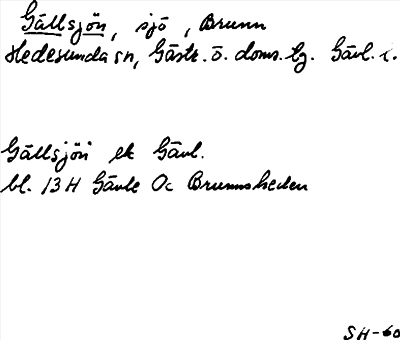 Gällsjön, sjö, Brunn
Hedesunda sn, Gästr. ö. doms. lg. Gävl. l.
Gällsjön ek Gävl.
bl. 13 H Gävle Oc Brunnsheden
SH-60